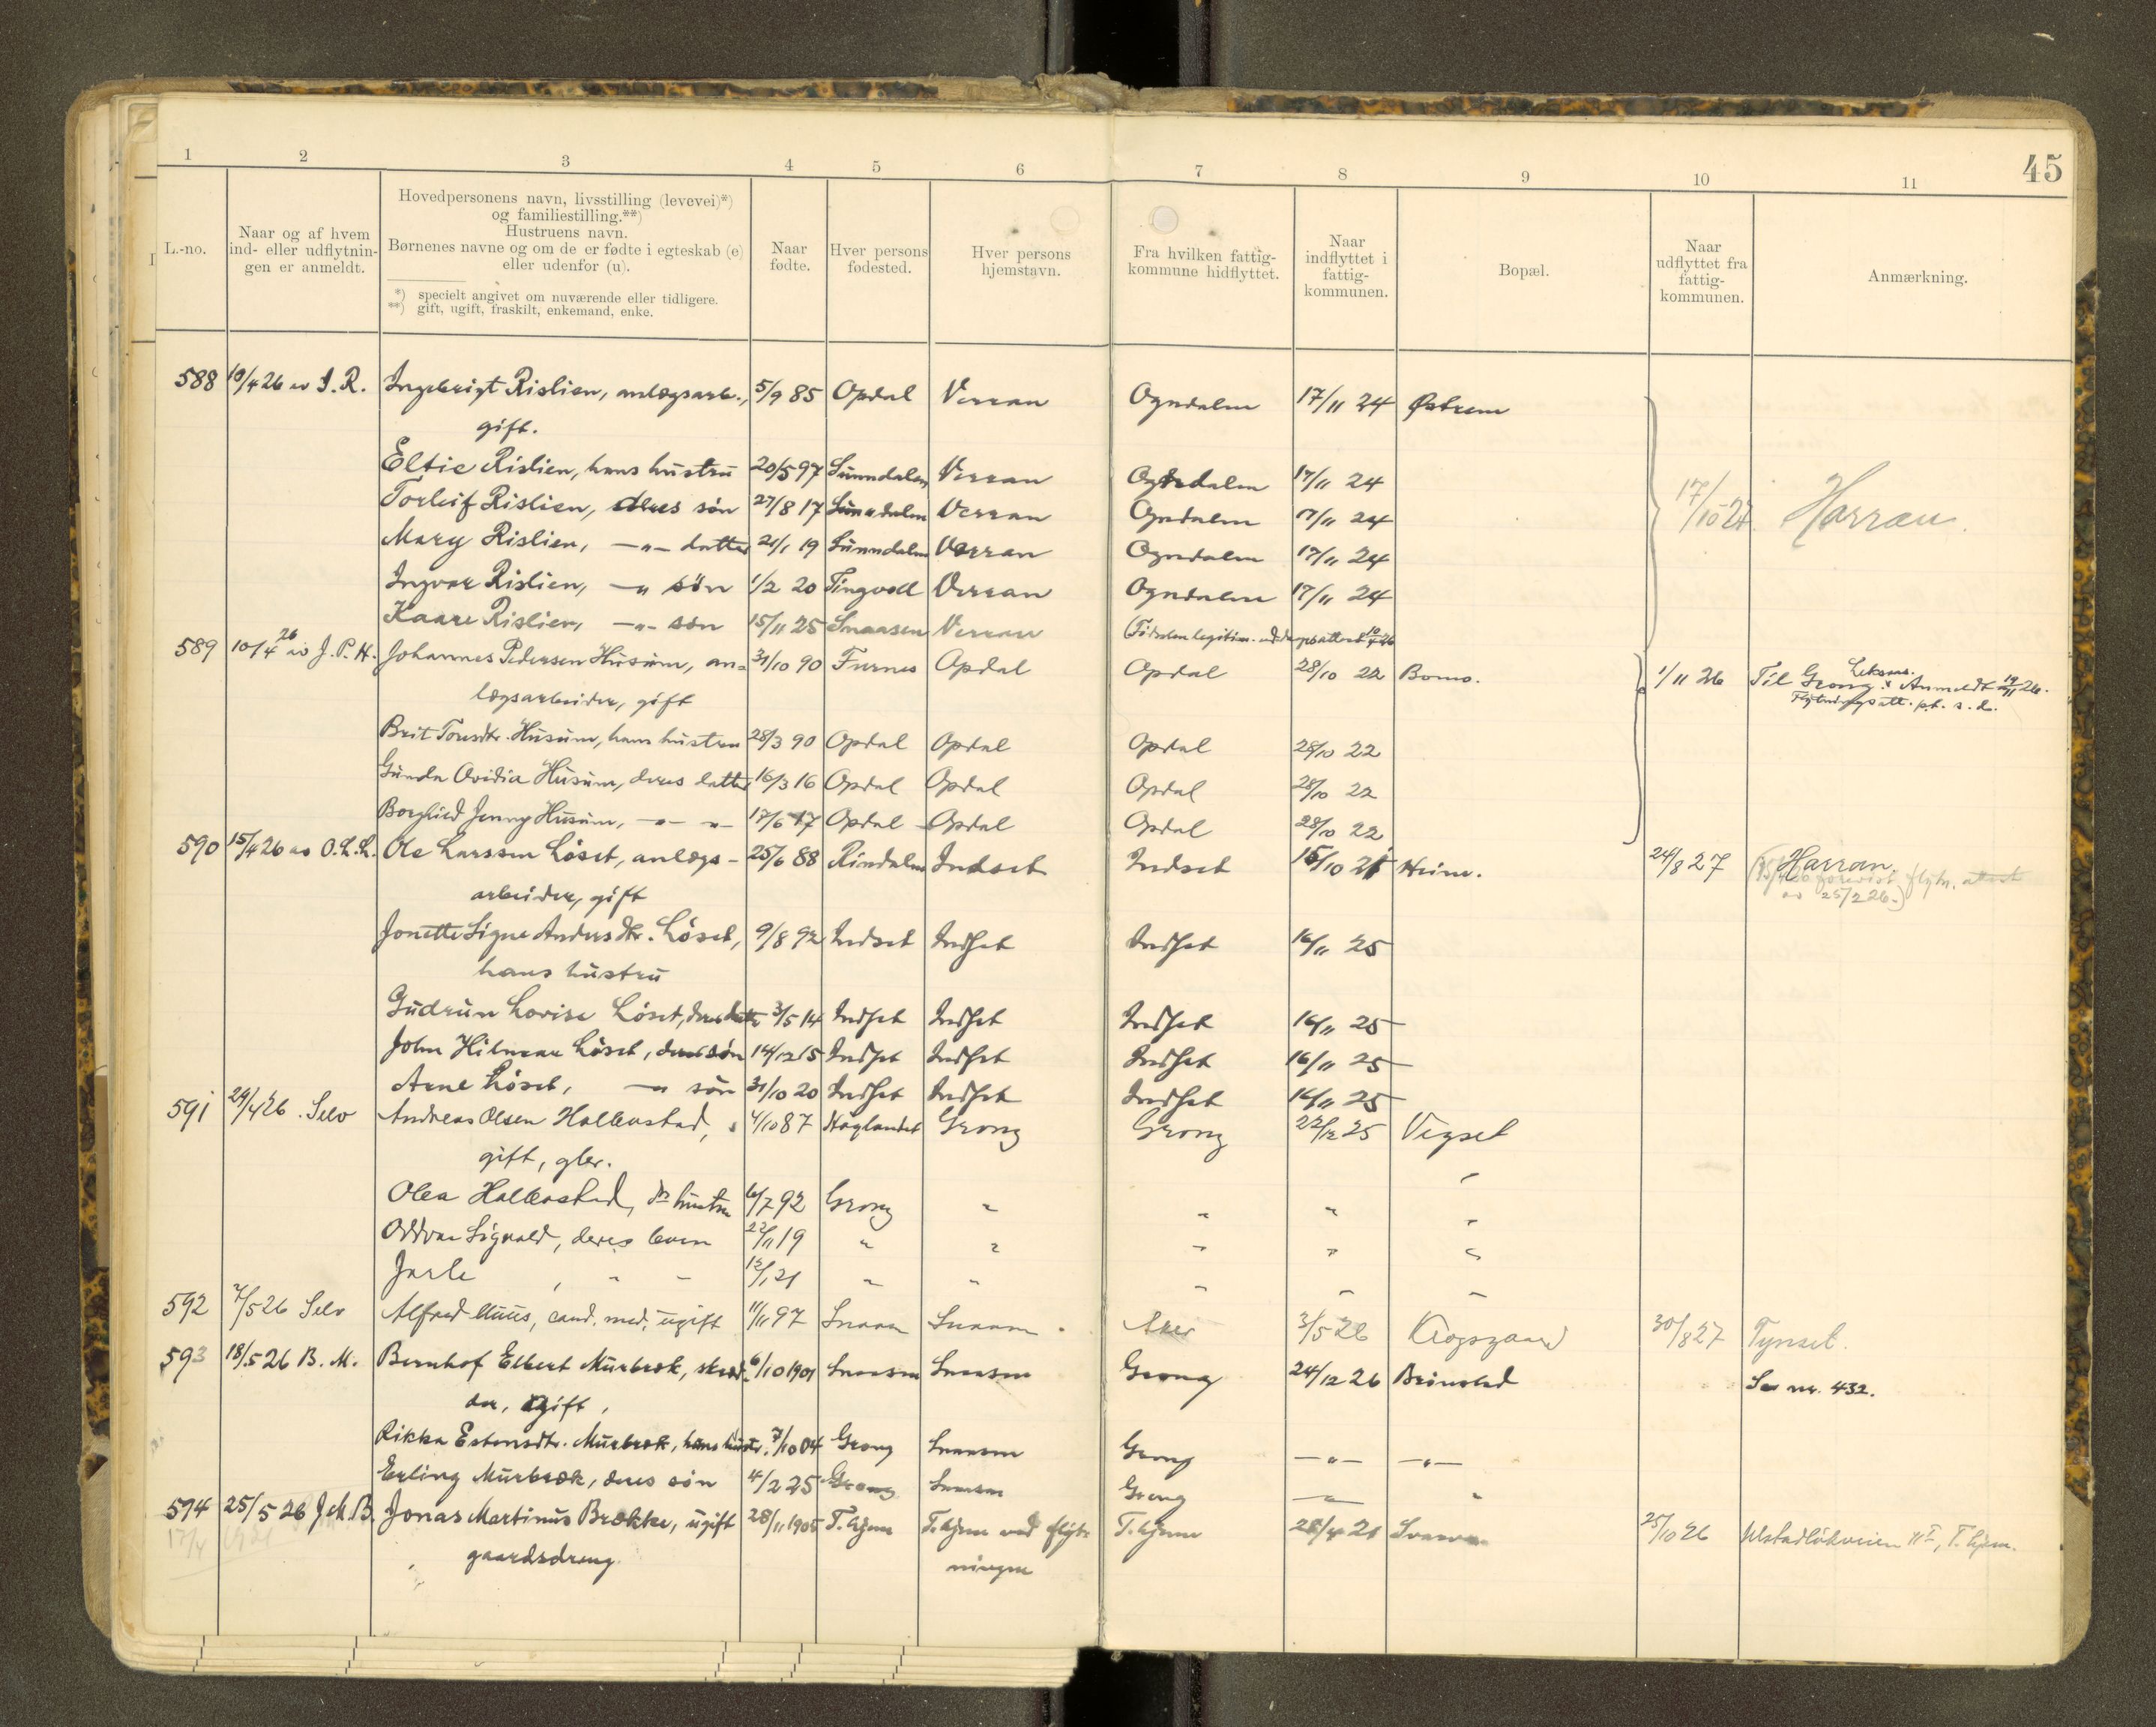 45
1 2 3 4 5 6 7 8 9 10 11
L.-no.
Naar og af hvem
ind- eller udflytnin-
gen er anmeldt.
Hovedpersonens navn, livsstilling (levevei)*)
og familiestilling.**)
Hustruens navn.
Børnenes navne og om de er fødte i egteskab (e)
eller udenfor (u).
*) specielt angivet om nuværende eller tidligere.
**) gift, ugift, fraskilt, enkemand, enke.
Naar
fødte.
Hver persons
fødested.
Hver persons
hjemstavn.
Fra hvilken fattig-
kommune hidflyttet.
Naar
indflyttet i
fattig-
kommunen.
Bopæl.
Naar
udflyttet fra
fattig-
kommunen.
Anmærkning.
588 10/4 26 av I. R. Ingebrigt Rislien, anlægsarb., 5/9 85 Opdal Verran Ogndalen 17/11 24 Østrem
gift.
Eltie Rislien, hans hustru 20/5 97 Sunndalen Verran Ogndalen 17/11 24
Torleif Rislien, deres søn 27/8 17 Sunndalen Verran Ogndalen 17/11 24 17/10 27 Harran.
Mary Rislien, -"- datter 21/1 19 Sunndalen Verran Ogndalen 17/11 24
Ingvar Rislien, -" søn 1/2 20 Tingvoll Verran Ogndalen 17/11 24
Kaare Rislien, -"- søn 15/11 25 Snaasen Verran
589 10/4 26 av J. P. H. Johannes Pedersen Husum, an- 31/10 90 Furnes Opdal Opdal 28/10 22 Bomo. 1/11 26 Til Grong. Anmeldt 19/11 26.
lægsarbeider, gift Flytningsatt. pt. s. d.
Brit Toresdtr. Husum, hans hustru 28/3 90 Opdal Opdal Opdal 28/10 22
Gunda Ovidia Husum, deres datter 16/3 16 Opdal Opdal Opdal 28/10 22
Borghild Jenny Husum, -"- "- 17/6 17 Opdal Opdal Opdal 28/10 22
590 15/4 26 av O. L. L. Ole Larssen Løset, anlægs- 25/6 88 Rindalen Indset Indset 15/10 21 Heim. 24/8 27 Harran.
arbeider, gift av 25/2 26.)
Jonette Signe Andersdtr. Løset, 9/8 92 Indset Indset Indset 16/11 25
hans hustru
Gudrun Lovise Løset, deres datter 3/5 14 Indset Indset Indset 16/11 25
John Hilmar Løset, deres søn 14/12 15 Indset Indset Indset 16/11 25
Arne Løset, -" søn 31/10 20 Indset Indset Indset 16/11 25
591 24/4 26. Selv Andreas Olsen Hallenstad, 4/10 87 Høylandet Grong Grong 22/12 25 Vegset
gift, gbr.
Olea Hallenstad, ds hustru 6/7 92 Grong " " " "
Oddvar Sigvald, deres barn 22/11 19 " " " " "
Jarle, " " 12/1 21 " " " " "
592 7/5 26 Selv Alfred Muus, cand. med., ugift 11/11 97 Snaasa Snaasa Aker 3/5 26 Krogsgaard 30/8 27 Tynset.
593 18/5 26 B. M. Bernhof Elbert Murbræk, skræd- 6/10 1901 Snaasen Snaasen Grong 24/12 26 Brønstad Se nr. 432.
der, gift,
Rikka Estensdtr. Murbræk, hans hustr. 7/10 04 Grong Snaasen Grong -"- -"-
Erling Murbræk, deres søn 4/2 25 Grong Snaasen Grong -"- "
594 25/5 26 J. M. B. Jonas Martinus Brække, ugift 28/11 1905 T.hjem T.hjem ved flyt- T.hjem 28/4 21 25/10 26 T.hjem.
gaardsdreng ningen